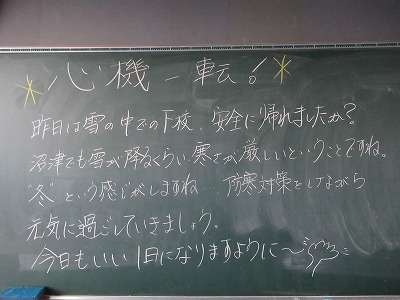 心機一転!
昨日は雪の中での下校、安全に帰れましたか?
沼津でも雪が降るくらい寒さが厳しいということですね。
"冬"という感じがしますね… 防寒対策をしながら
元気に過ごしていきましょう。
今日もいい1日になりますように〜